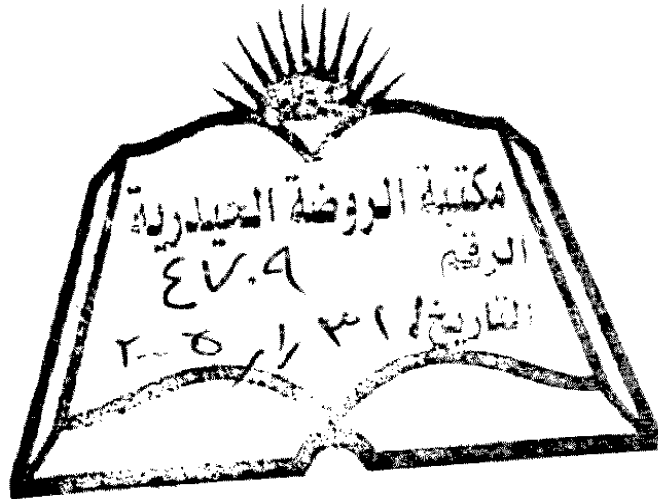 مكتبة الروضة الحيدرية
الرقم ٤٧٠٩
التاريخ ٣١ / ١ / ٢٠٠٥